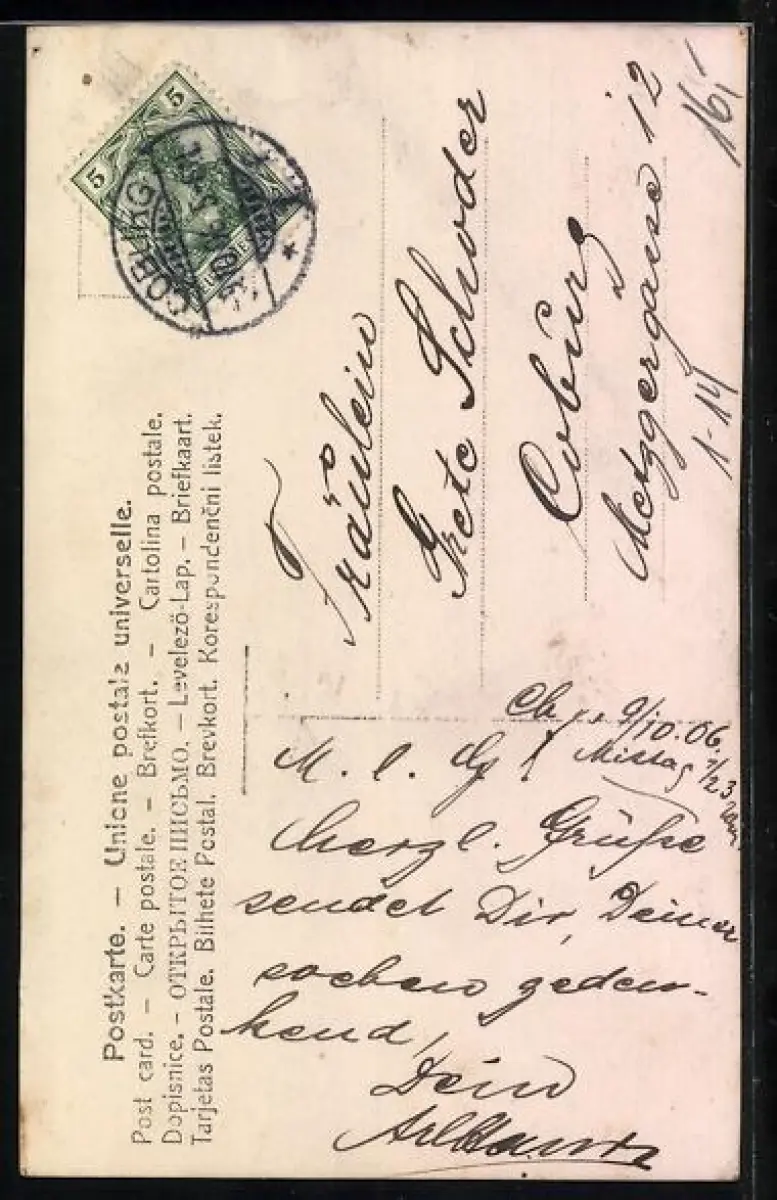 Postkarte. – Unione postale universelle.
Post card. – Carte postale. – Brefkort. – Cartolina postale.
Dopisnice. – ОТКРЫТОЕ ПИСЬМО. – Levelező-Lap. – Briefkaart.
Tarjetas Postale. Bilhete Postal. Brevkort. Korespondenční listek.
5
5
COBURG
Fräulein
Grete Schoder
Coburg
Metzgergasse 12
1-14
16,
Cb. 9/10.06.
Mittag 1/23
M. l. G!
herzl. Grüße
sendet Dir, Deiner
soeben geden-
kend,
Dein